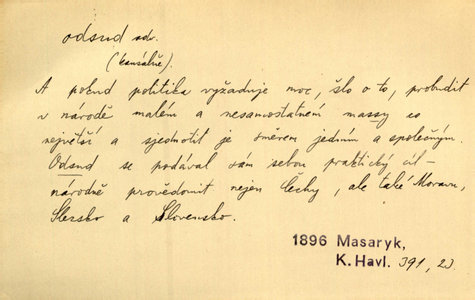 odsud adv.
(kausálně).
A pokud politika vyžaduje moc, šlo o to, probudit
v národě malém a nesamostatném massy co
největší a sjednotit je směrem jedním a společným.
Odsud se podával sám sebou praktický cíl –
národně provědomit nejen Čechy, ale také Moravu,
Slezsko a Slovensko.
1896 Masaryk,
K. Havl. 391, 23.